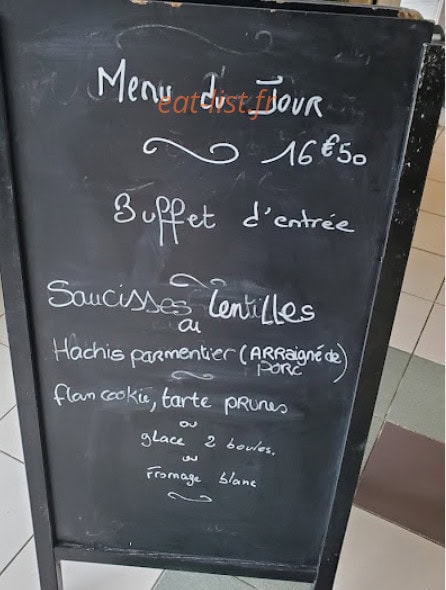 Menu du Jour
eat-list.fr
16€50
Buffet d'entrée
Saucisses lentilles
ou
Hachis parmentier (ARRaigné de
PORC)
flan cookie, tarte PRUNES
ou
glace 2 boules.
ou
Fromage blanc